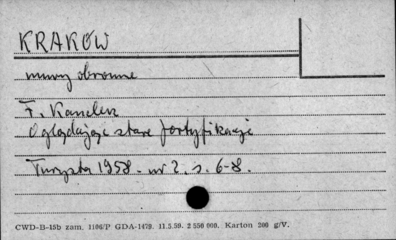 KRAKÓW
mury obronne
F. Kanclerz
Oglądając stare fortyfikacje
Turysta 1958. nr 2. s. 6-8.
CWD-B-15b zam. 1106/P GDA-1479. 11.5.59. 2 550 000. Karton 200 g/V.